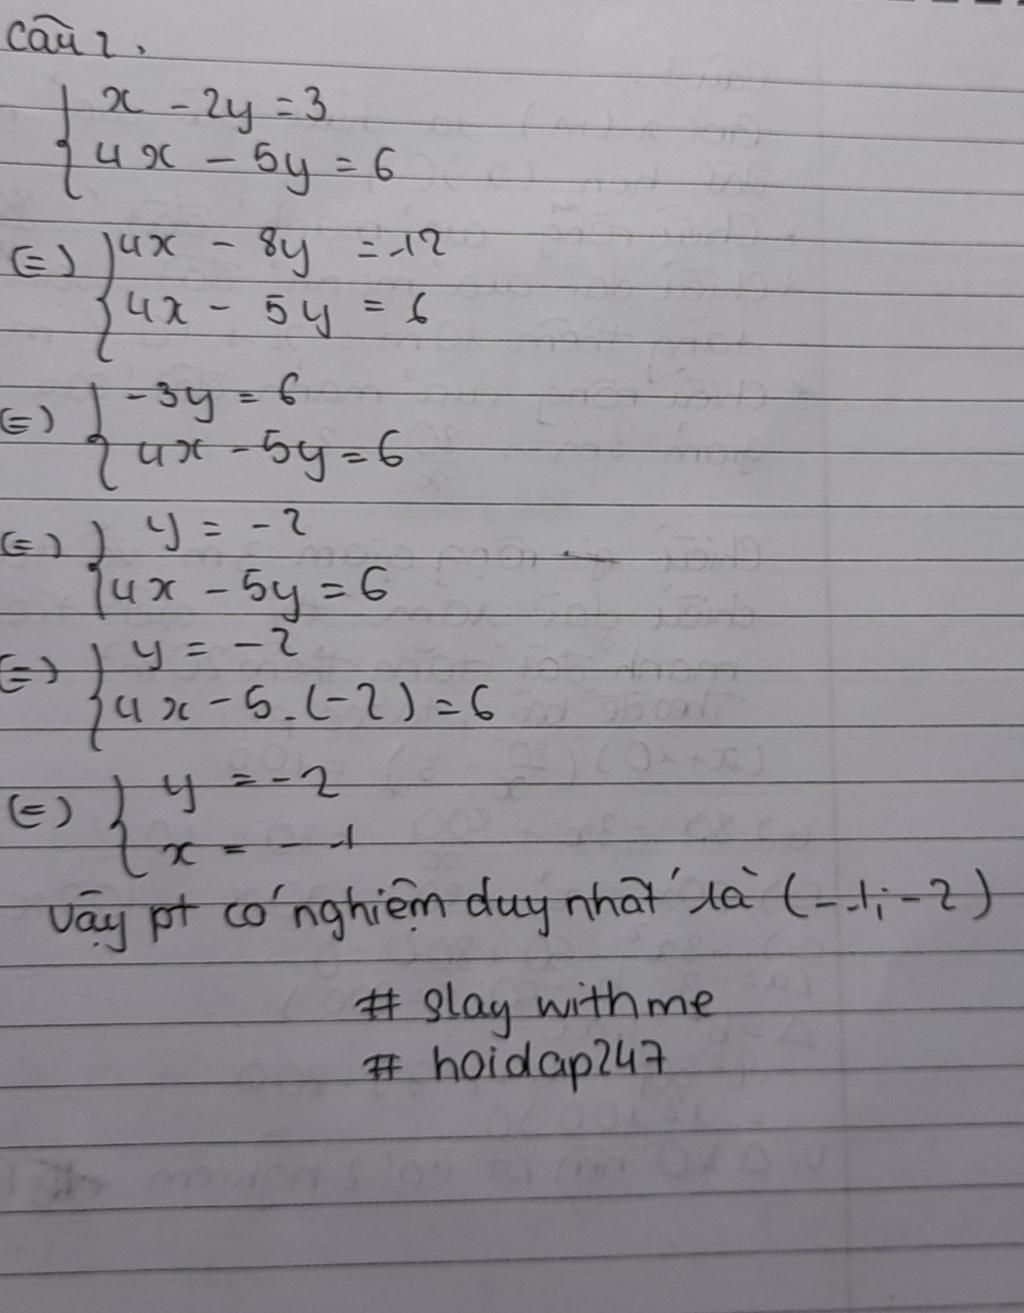 Câu 2.
{ x - 2y = 3
{ 4x - 5y = 6
(=) { 4x - 8y = 12
{ 4x - 5y = 6
(=) { -3y = 6
{ 4x - 5y = 6
(=) { y = -2
{ 4x - 5y = 6
(=) { y = -2
{ 4x - 5.(-2) = 6
(=) { y = -2
{ x = -1
Vậy pt có nghiệm duy nhất là (-1; -2)
# slay with me
# hoidap247